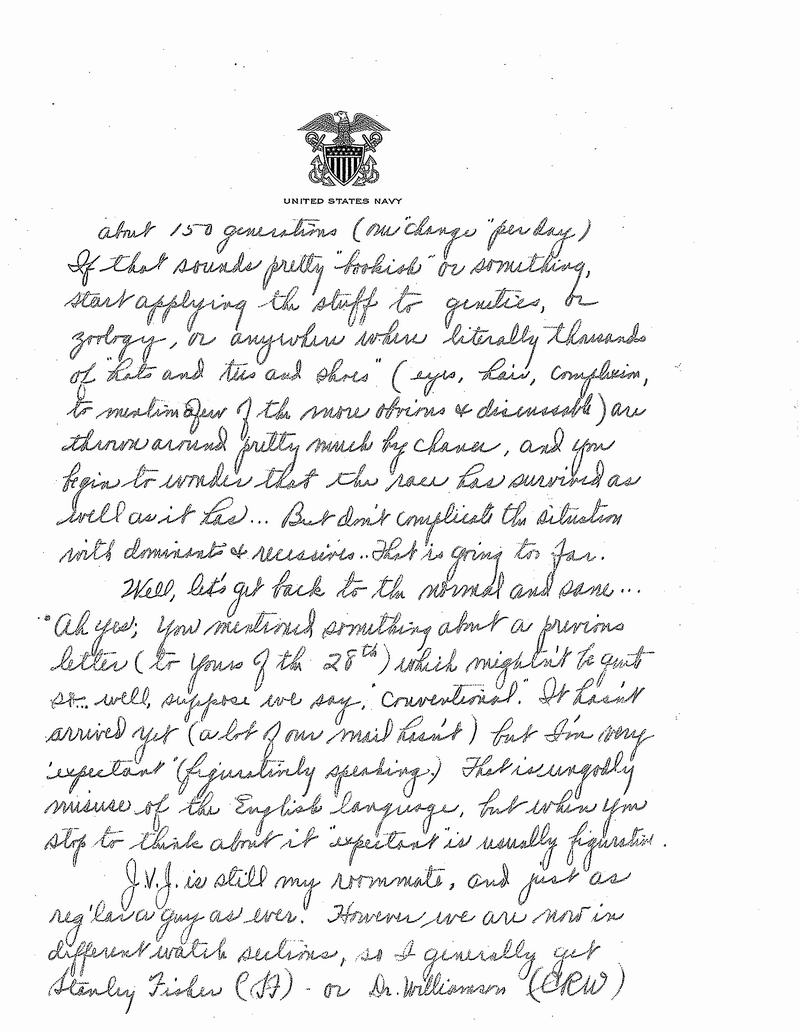 UNITED STATES NAVY
about 150 generations (one "change" per day)
If that sounds pretty "bookish" or something,
start applying the stuff to genetics, or
zoology, or anywhere where literally thousands
of "hats and ties and shoes" (eyes, hair, complexion,
to mention a few of the more obvious & discussable) are
thrown around pretty much by chance, and you
begin to wonder that the race has survived as
well as it has... But don't complicate the situation
with dominants & recessives.. That is going too far.
Well, let's get back to the normal and sane...
Ah yes; You mentioned something about a previous
letter (to yours of the 28th) which mightn't be quite
so... well, suppose we say, "conventional." It hasn't
arrived yet (a lot of our mail hasn't) but I'm very
"expectant" (figuratively speaking.) That is ungodly
misuse of the English language, but when you
stop to think about it "expectant" is usually figurative.
J.V.J. is still my roommate, and just as
reg'lar a guy as ever. However we are now in
different watch sections, so I generally get
Stanley Fisher - or Dr. Williamson (CRW)